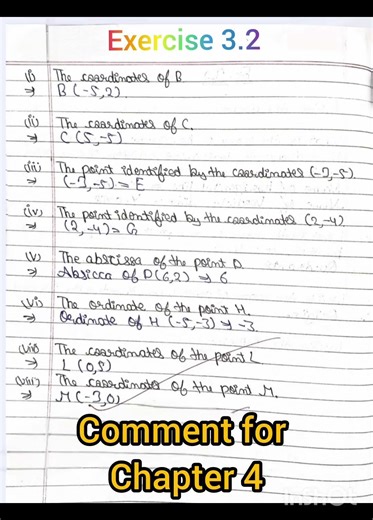 Exercise 3.2
(i) The coordinates of B.
⇒ B (-5,2).
(ii) The coordinates of C.
⇒ C (5,-5)
(iii) The point identified by the coordinates (-3,-5).
⇒ (-3,-5) = E
(iv) The point identified by the coordinates (2,-4).
⇒ (2,-4) = G
(v) The abscissa of the point D.
⇒ Absicca of D(6,2) → 6
(vi) The ordinate of the point H.
⇒ Ordinate of H (-5,-3) → -3.
(vii) The coordinates of the point L
⇒ L (0,5)
(viii) The coordinates of the point M.
⇒ M (-3,0)
Comment for
Chapter 4
InShot